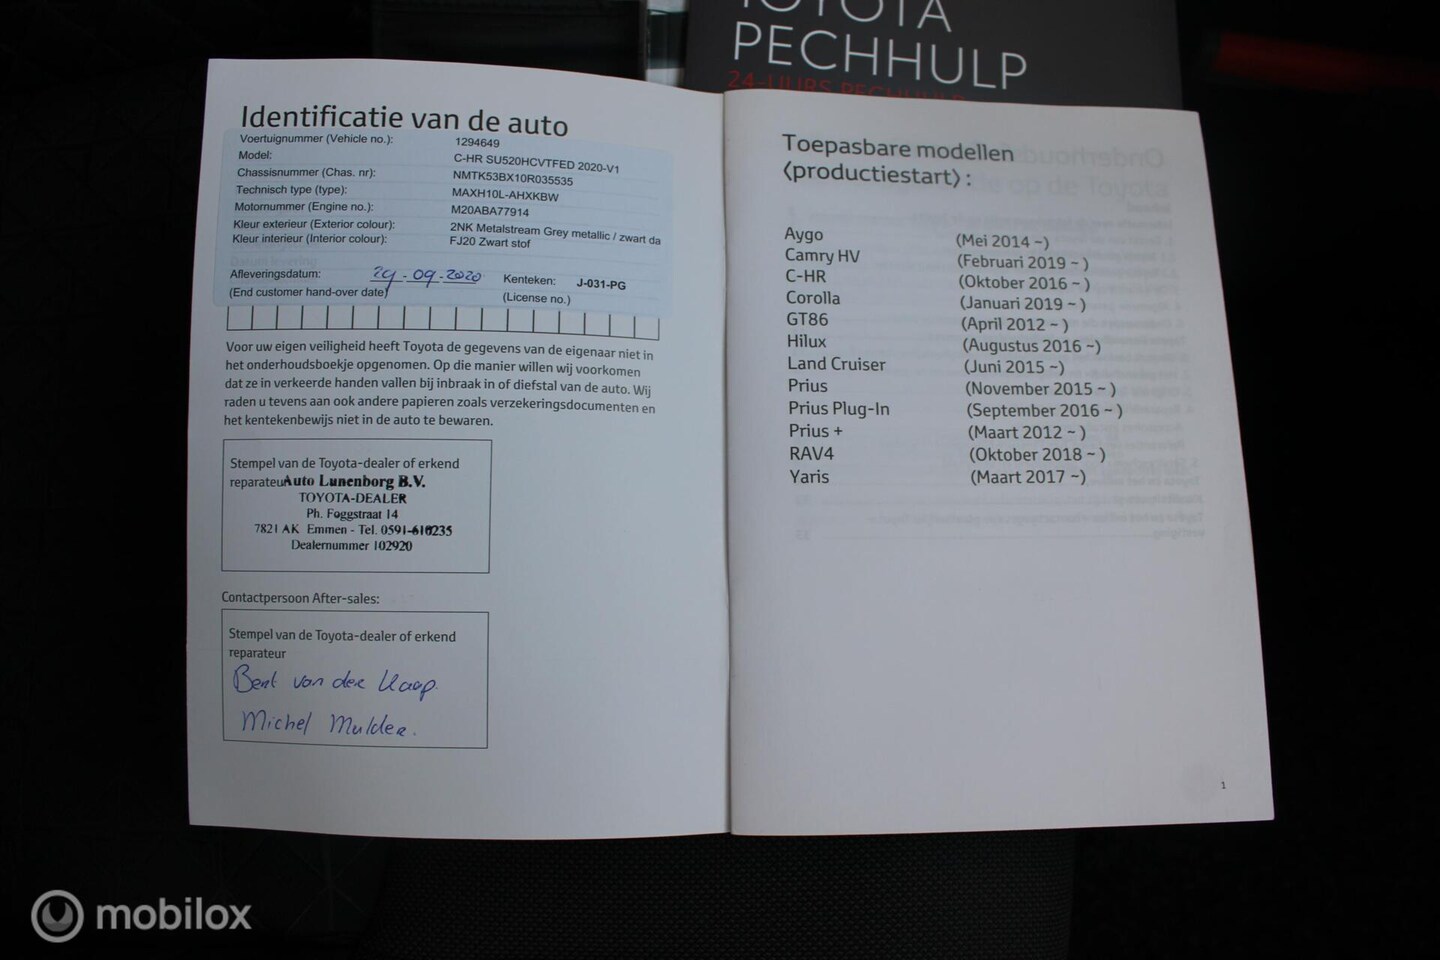 TOYOTA
PECHHULP
24-UURS PECHHULP
Identificatie van de auto
Voertuignummer (Vehicle no.): 1294649
Model: C-HR SU520HCVTFED 2020-V1
Chassisnummer (Chas. nr): NMTK53BX10R035535
Technisch type (type): MAXH10L-AHXKBW
Motornummer (Engine no.): M20ABA77914
Kleur exterieur (Exterior colour): 2NK Metalstream Grey metallic / zwart da
Kleur interieur (Interior colour): FJ20 Zwart stof
Afleveringsdatum: 29-09-2020 Kenteken: J-031-PG
(End customer hand-over date) (License no.)
Voor uw eigen veiligheid heeft Toyota de gegevens van de eigenaar niet in
het onderhoudsboekje opgenomen. Op die manier willen wij voorkomen
dat ze in verkeerde handen vallen bij inbraak in of diefstal van de auto. Wij
raden u tevens aan ook andere papieren zoals verzekeringsdocumenten en
het kentekenbewijs niet in de auto te bewaren.
Stempel van de Toyota-dealer of erkend
reparateur Auto Lunenborg B.V.
TOYOTA-DEALER
Ph. Foggstraat 14
7821 AK Emmen - Tel. 0591-610235
Dealernummer 102920
Contactpersoon After-sales:
Stempel van de Toyota-dealer of erkend
reparateur
Bert van der Kaap.
Michel Mulder.
Toepasbare modellen
⟨productiestart⟩ :
Aygo (Mei 2014 ~)
Camry HV (Februari 2019 ~ )
C-HR (Oktober 2016 ~ )
Corolla (Januari 2019 ~ )
GT86 (April 2012 ~ )
Hilux (Augustus 2016 ~)
Land Cruiser (Juni 2015 ~)
Prius (November 2015 ~ )
Prius Plug-In (September 2016 ~ )
Prius + (Maart 2012 ~ )
RAV4 (Oktober 2018 ~ )
Yaris (Maart 2017 ~)
1
mobilox